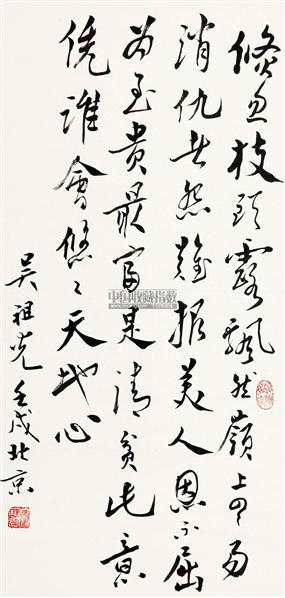 倏忽枝頭露飄然嶺上雲易
消仇者怨難報美人恩不屈
為至貴最富是清貧此意
凭誰會悠〻天地心
吳祖光 壬戌北京
中国收藏指数